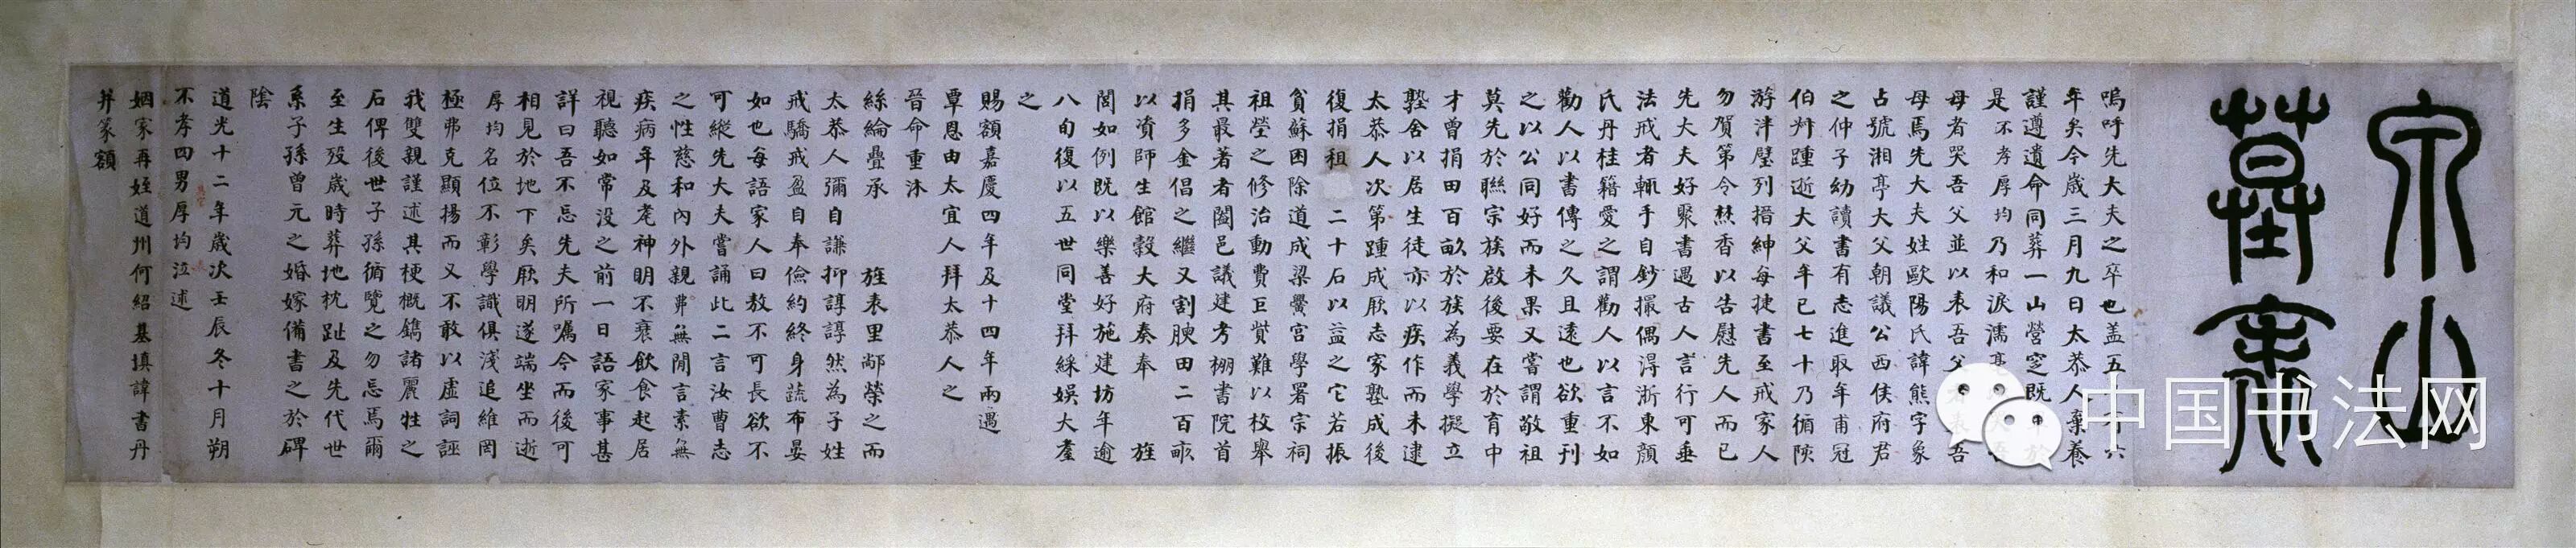 穴山
墓表
嗚呼先大夫之卒也盖五
年矣今歲三月九日太恭人棄養
謹遵遺命同葬一山營窆既
是不孝厚均乃和淚濡
母者哭吾父並以表吾父
母焉先大夫姓歐陽氏諱熊字象
占號湘亭大父朝議公西侯府君
之仲子幼讀書有志進取年甫冠
伯艸踵逝大父年已七十乃循陔
游泮璧列搢紳每捷書至戒家人
勿賀第令爇香以告慰先人而已
先大夫好聚書遇古人言行可垂
法戒者輒手自鈔撮偶淂浙東顏
氏丹桂籍愛之謂勸人以言不如
勸人以書傳之久且遠也欲重刊
之以公同好而未果又嘗謂敬祖
莫先於聯宗族啟後要在於育中
才曾捐田百畝於族為義學擬立
塾舍以居生徒亦以疾作而未逮
太恭人次第踵成厥志家塾成後
復捐租二十石以益之它若振
貧蘇困除道成梁黌宮學署宗祠
祖塋之修治動費巨貲難以枚舉
其最著者闔邑議建考棚書院首
捐多金倡之繼又割腴田二百畝
以資師生館穀大府奏奉 旌
閭如例既以樂善好施建坊年逾
八旬復以五世同堂拜綵娛大耋
之
賜額嘉慶四年及十四年兩遇
覃恩由太宜人拜太恭人之
晉命重沐
絲綸疊承 旌表里鄰榮之而
太恭人彌自謙抑諄諄然為子姓
戒驕戒盈自奉儉約終身蔬布晏
如也每語家人曰敖不可長欲不
可縱先大夫嘗誦此二言汝曹志
之性慈和內外親弗無閒言素無
疾病年及耄神明不衰飲食起居
視聽如常没之前一日語家事甚
詳曰吾不忘先夫所囑今而後可
相見於地下矣厥明遂端坐而逝
厚均名位不彰學識俱淺追維罔
極弗克顯揚而又不敢以虛詞誣
我雙親謹述其梗概鐫諸麗牲之
石俾後世子孫循覽之勿忘焉爾
至生殁歲時葬地枕趾及先代世
系子孫曾元之婚嫁備書之於碑
陰
道光十二年歲次壬辰冬十月朔
不孝四男厚均泣述
姻家再姪道州何紹基填諱書丹
并篆額
中国书法网